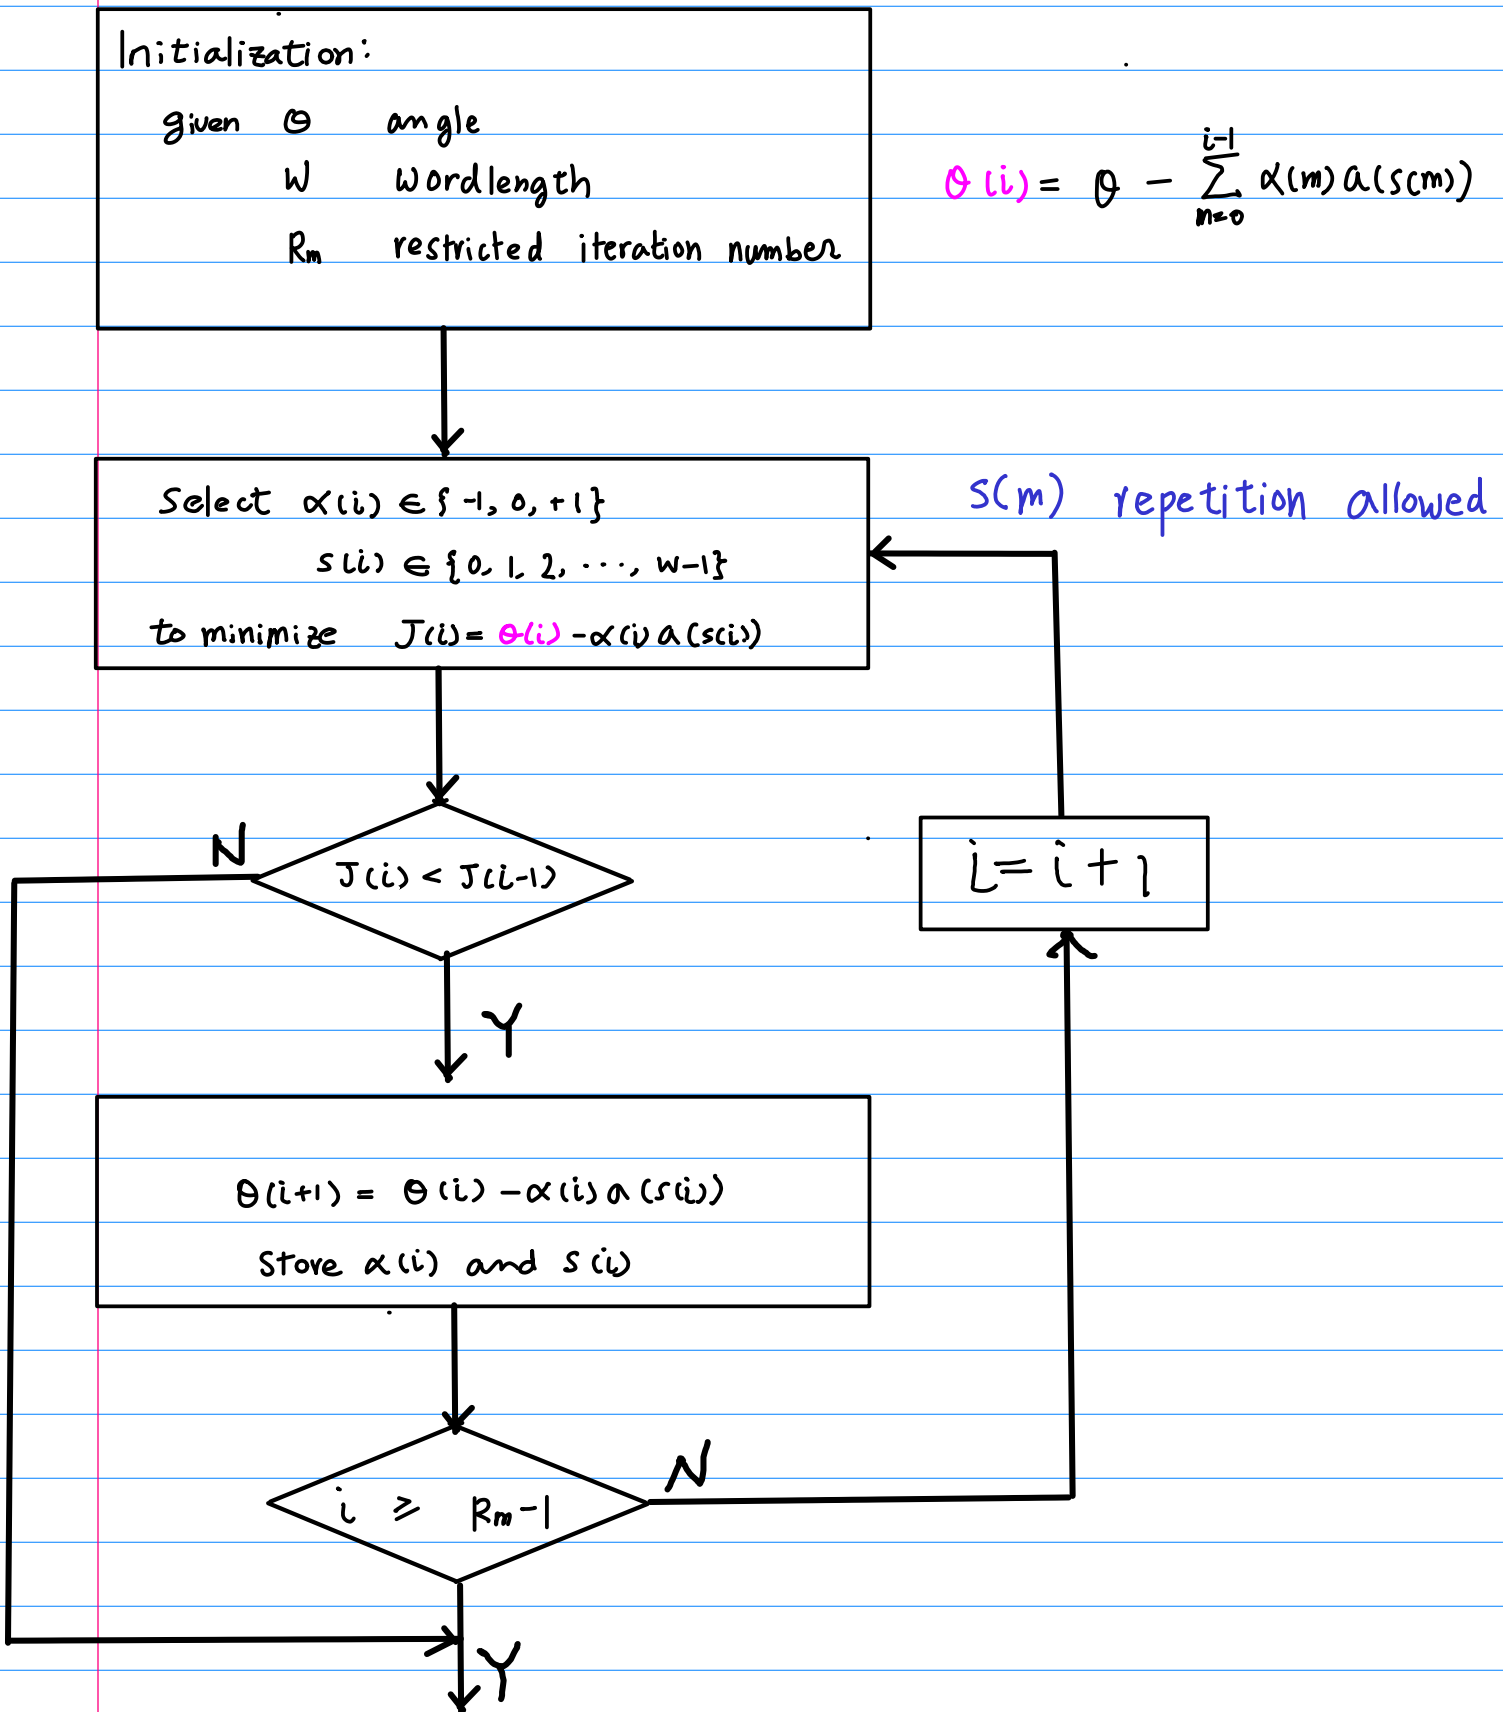 Initialization:
given θ angle
W wordlength
Rm restricted iteration number
θ(i) = θ - Σ α(m) a(s(m))
i-1
m=0
Select α(i) ∈ {-1, 0, +1}
s(i) ∈ {0, 1, 2, ..., W-1}
to minimize J(i) = θ(i) - α(i) a(s(i))
S(m) repetition allowed
N
J(i) < J(i-1)
i = i + 1
Y
θ(i+1) = θ(i) - α(i) a(s(i))
Store α(i) and s(i)
N
i ≥ Rm-1
Y